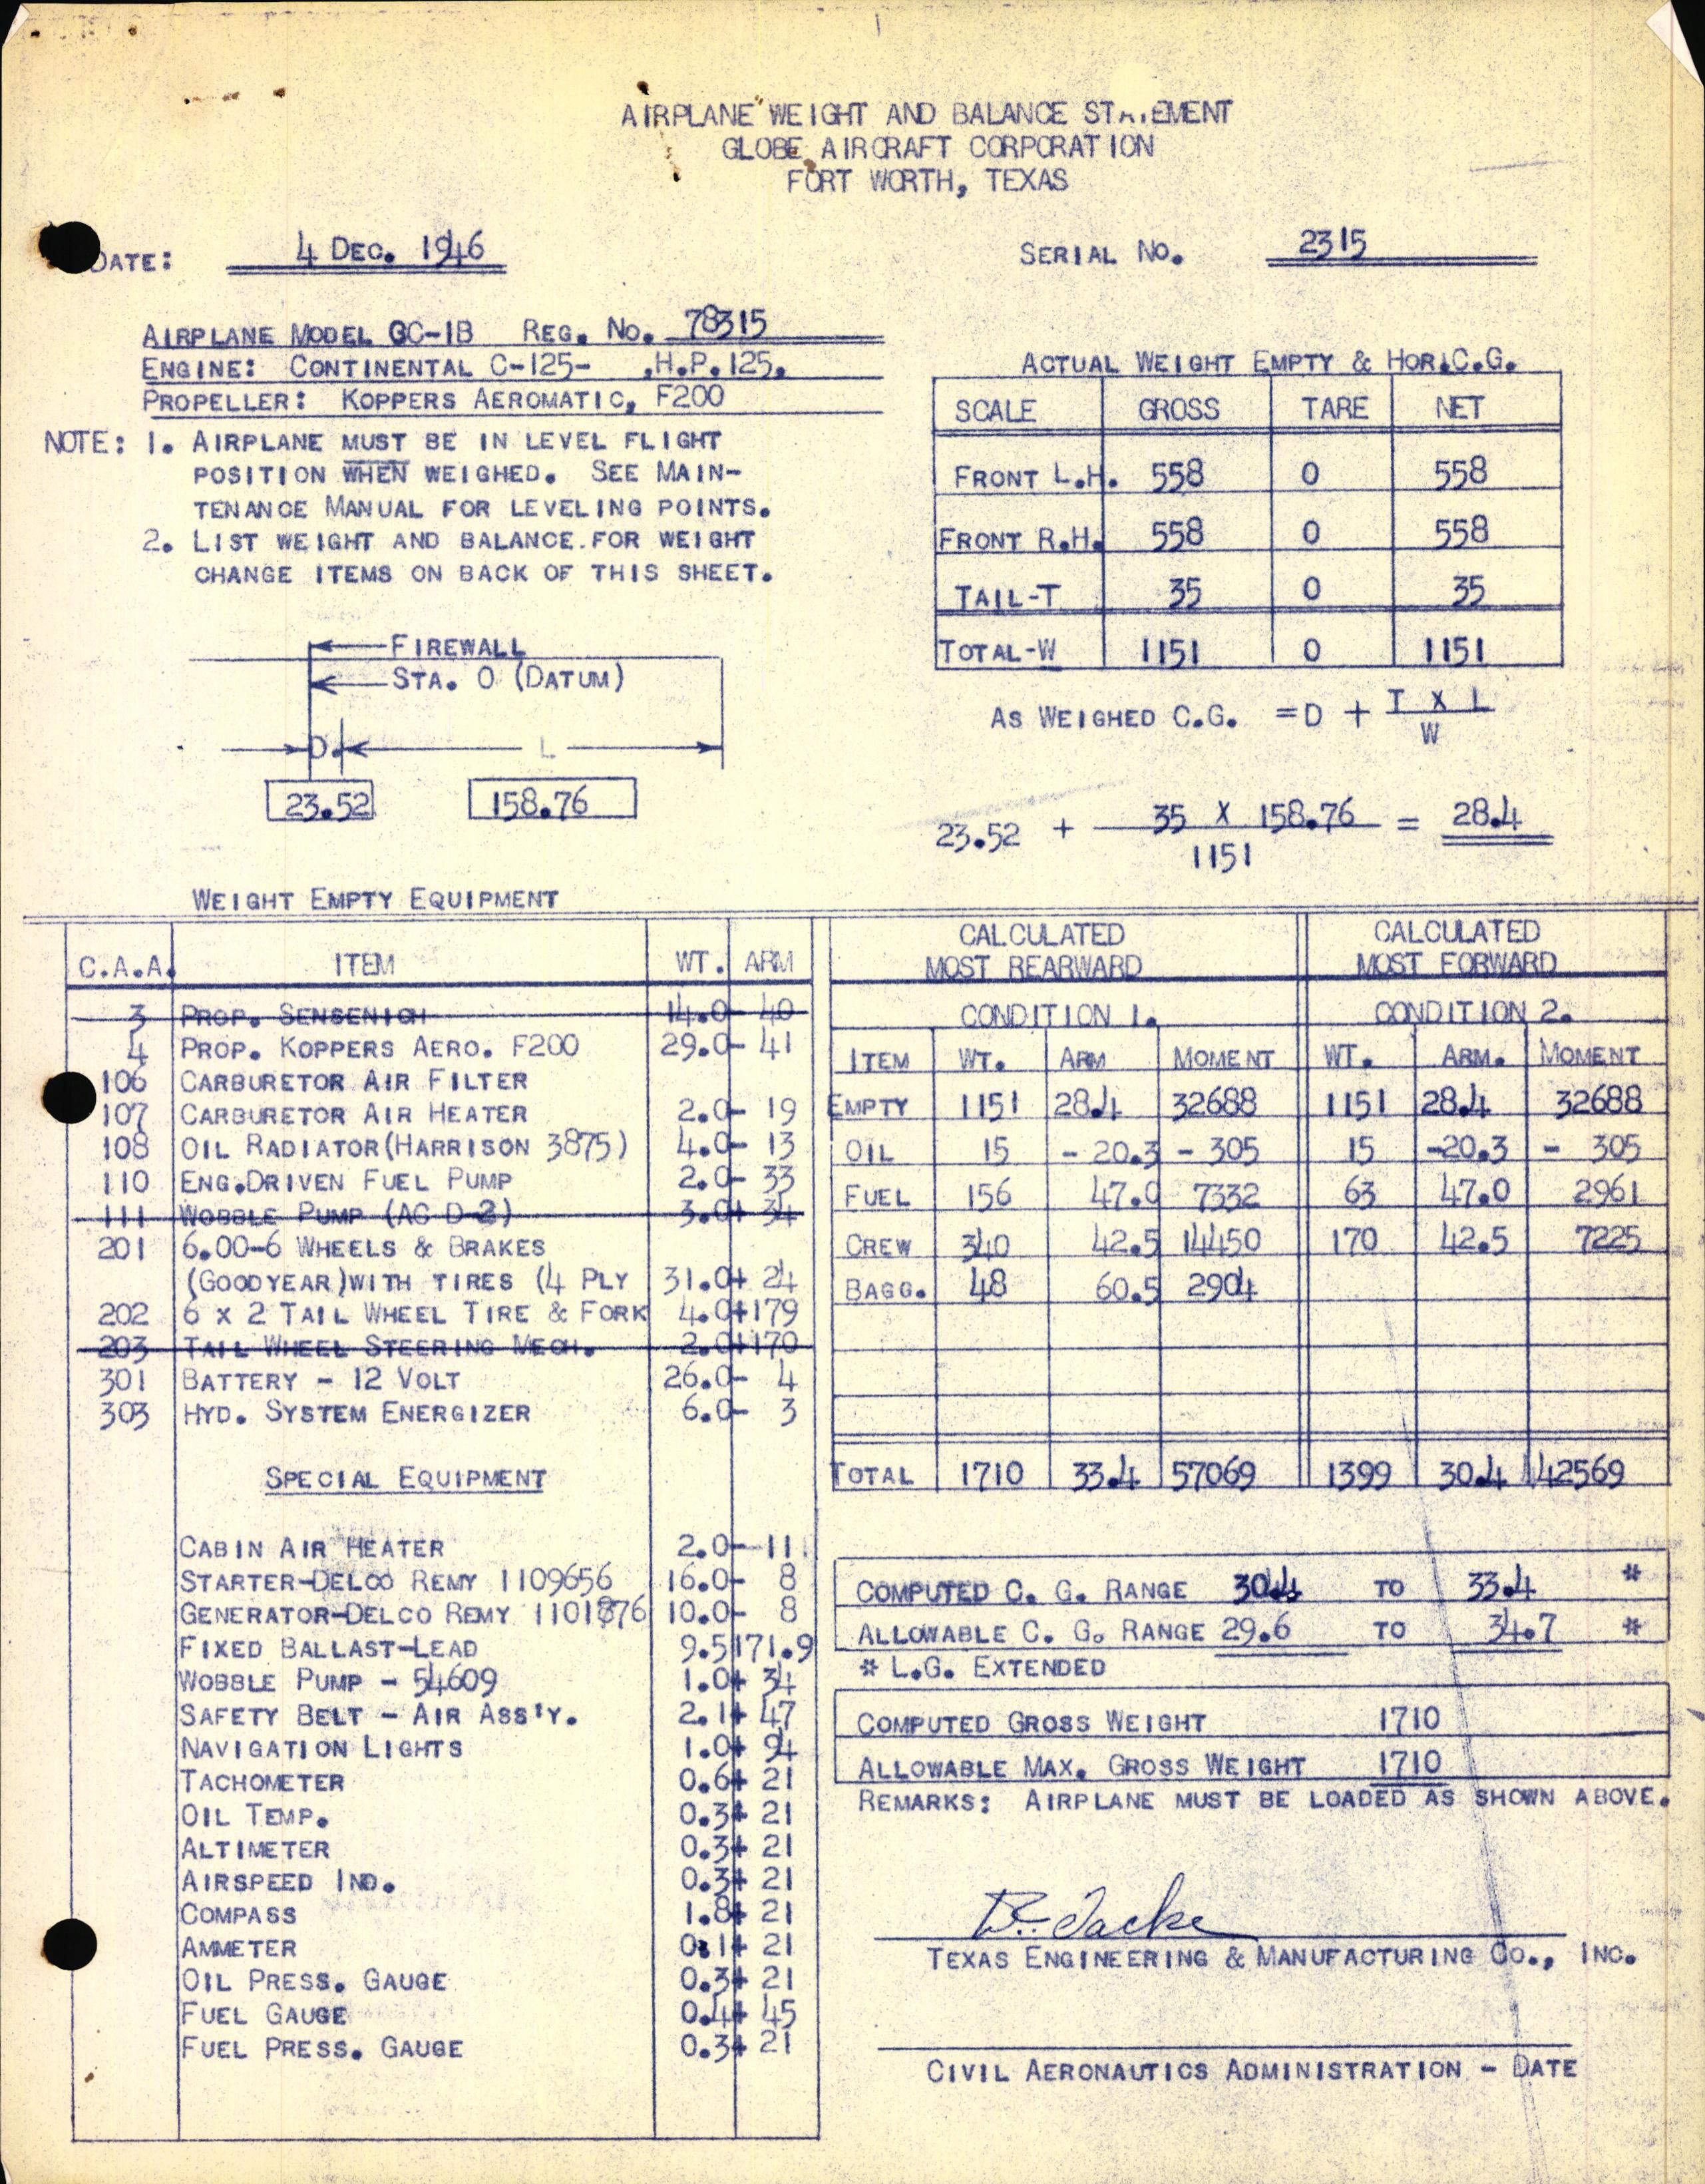 AIRPLANE WEIGHT AND BALANCE STATEMENT
GLOBE AIRCRAFT CORPORATION
FORT WORTH, TEXAS
DATE: 4 DEC. 1946
SERIAL NO. 2315
AIRPLANE MODEL GC-1B REG. NO. 78315
ENGINE: CONTINENTAL C-125- .H.P. 125.
PROPELLER: KOPPERS AEROMATIC, F200
NOTE: 1. AIRPLANE MUST BE IN LEVEL FLIGHT
POSITION WHEN WEIGHED. SEE MAIN-
TENANCE MANUAL FOR LEVELING POINTS.
2. LIST WEIGHT AND BALANCE.FOR WEIGHT
CHANGE ITEMS ON BACK OF THIS SHEET.
ACTUAL WEIGHT EMPTY & HOR.C.G.
SCALE GROSS TARE NET
FRONT L.H. 558 0 558
FRONT R.H. 558 0 558
TAIL-T 35 0 35
TOTAL-W 1151 0 1151
FIREWALL
STA. 0 (DATUM)
D. L
23.52 158.76
AS WEIGHED C.G. = D + T X L
W
23.52 + 35 X 158.76 = 28.4
1151
WEIGHT EMPTY EQUIPMENT
C.A.A. ITEM WT. ARM
3 PROP. SENSENICH 14.0- 40
4 PROP. KOPPERS AERO. F200 29.0- 41
106 CARBURETOR AIR FILTER
107 CARBURETOR AIR HEATER 2.0- 19
108 OIL RADIATOR(HARRISON 3875) 4.0- 13
110 ENG.DRIVEN FUEL PUMP 2.0- 33
111 WOBBLE PUMP (AC D-2) 3.0+ 34
201 6.00-6 WHEELS & BRAKES
(GOODYEAR)WITH TIRES (4 PLY 31.0+ 24
202 6 X 2 TAIL WHEEL TIRE & FORK 4.0+179
203 TAIL WHEEL STEERING MECH. 2.0+170
301 BATTERY - 12 VOLT 26.0- 4
303 HYD. SYSTEM ENERGIZER 6.0- 3
SPECIAL EQUIPMENT
CABIN AIR HEATER 2.0- 11
STARTER-DELCO REMY 1109656 16.0- 8
GENERATOR-DELCO REMY 1101876 10.0- 8
FIXED BALLAST-LEAD 9.5 171.9
WOBBLE PUMP - 54609 1.0+ 34
SAFETY BELT - AIR ASS'Y. 2.1+ 47
NAVIGATION LIGHTS 1.0+ 94
TACHOMETER 0.6+ 21
OIL TEMP. 0.3+ 21
ALTIMETER 0.3+ 21
AIRSPEED IND. 0.3+ 21
COMPASS 1.8+ 21
AMMETER 0.1+ 21
OIL PRESS. GAUGE 0.3+ 21
FUEL GAUGE 0.4+ 45
FUEL PRESS. GAUGE 0.3+ 21
CALCULATED MOST REARWARD
CALCULATED MOST FORWARD
CONDITION 1. CONDITION 2.
ITEM WT. ARM MOMENT WT. ARM. MOMENT
EMPTY 1151 28.4 32688 1151 28.4 32688
OIL 15 - 20.3 - 305 15 -20.3 - 305
FUEL 156 47.0 7332 63 47.0 2961
CREW 340 42.5 14450 170 42.5 7225
BAGG. 48 60.5 2904
TOTAL 1710 33.4 57069 1399 30.4 42569
COMPUTED C. G. RANGE 30.4 TO 33.4 *
ALLOWABLE C. G. RANGE 29.6 TO 34.7 *
* L.G. EXTENDED
COMPUTED GROSS WEIGHT 1710
ALLOWABLE MAX. GROSS WEIGHT 1710
REMARKS: AIRPLANE MUST BE LOADED AS SHOWN ABOVE.
TEXAS ENGINEERING & MANUFACTURING CO., INC.
CIVIL AERONAUTICS ADMINISTRATION - DATE